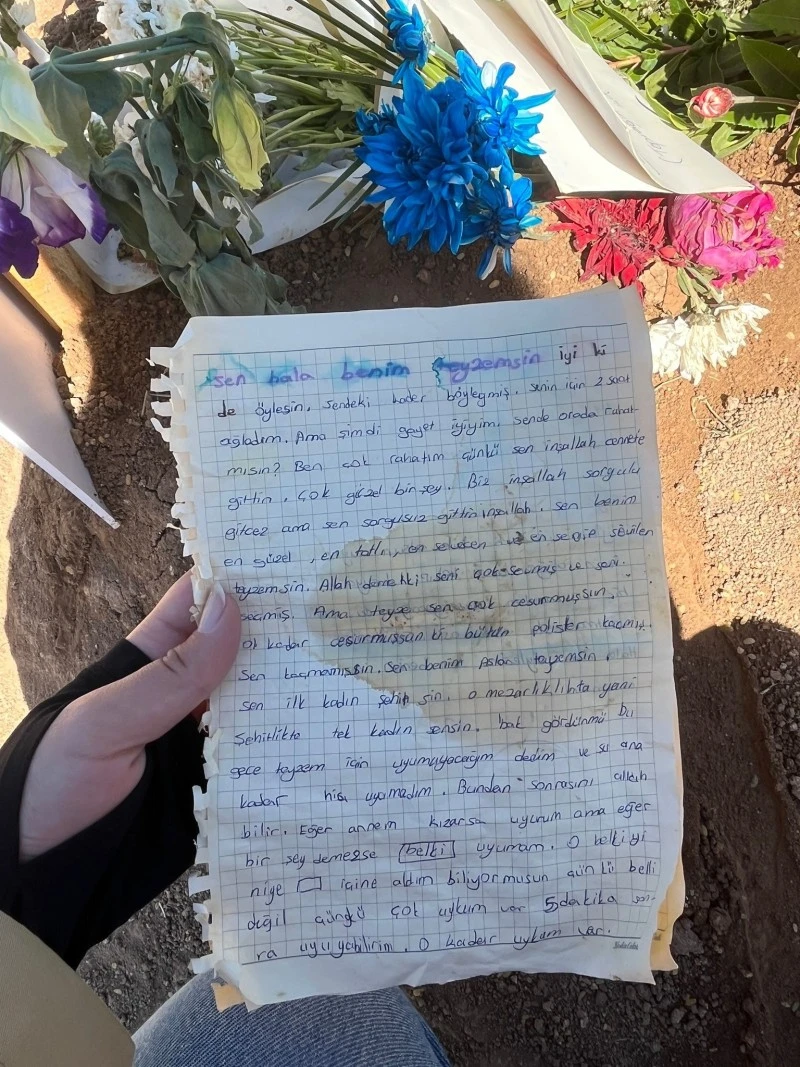 sen hala benim teyzemsin iyi ki
de öylesin. Sendeki kader böyleymiş. senin için 2 saat
ağladım. Ama şimdi gayet iyiyim. Sende orada rahat-
mısın? Ben çok rahatım çünkü sen inşallah cennete
gittin. Çok güzel bir şey. Biz inşallah sorgulu
gitcez ama sen sorgusuz gittin inşallah. sen benim
en güzel, en tatlı, en sevecen ve en sevilen
teyzemsin. Allah demekki seni çok sevmiş ve seni
seçmiş. Ama teyze sen çok cesurmuşsun.
O kadar cesurmuşsun ki bütün polisler kaçmış.
Sen kaçmamışsın. Sen benim Aslan teyzemsin
sen ilk kadın şehitsin. o mezarlıklıkta yani
Şehitlikte tek kadın sensin. bak gördünmü bu
gece teyzem için uyumuyacağım dedim ve şu ana
kadar hiç uyumadım. Bundan sonrasını allah
bilir. Eğer annem kızarsa uyurum ama eğer
bir şey demezse belki uyumam. O belkiyi
niye içine aldım biliyormusun çünkü belli
değil çünkü çok uykum var 5 dakika son-
ra uyuyabilirim. O kadar uykum var.